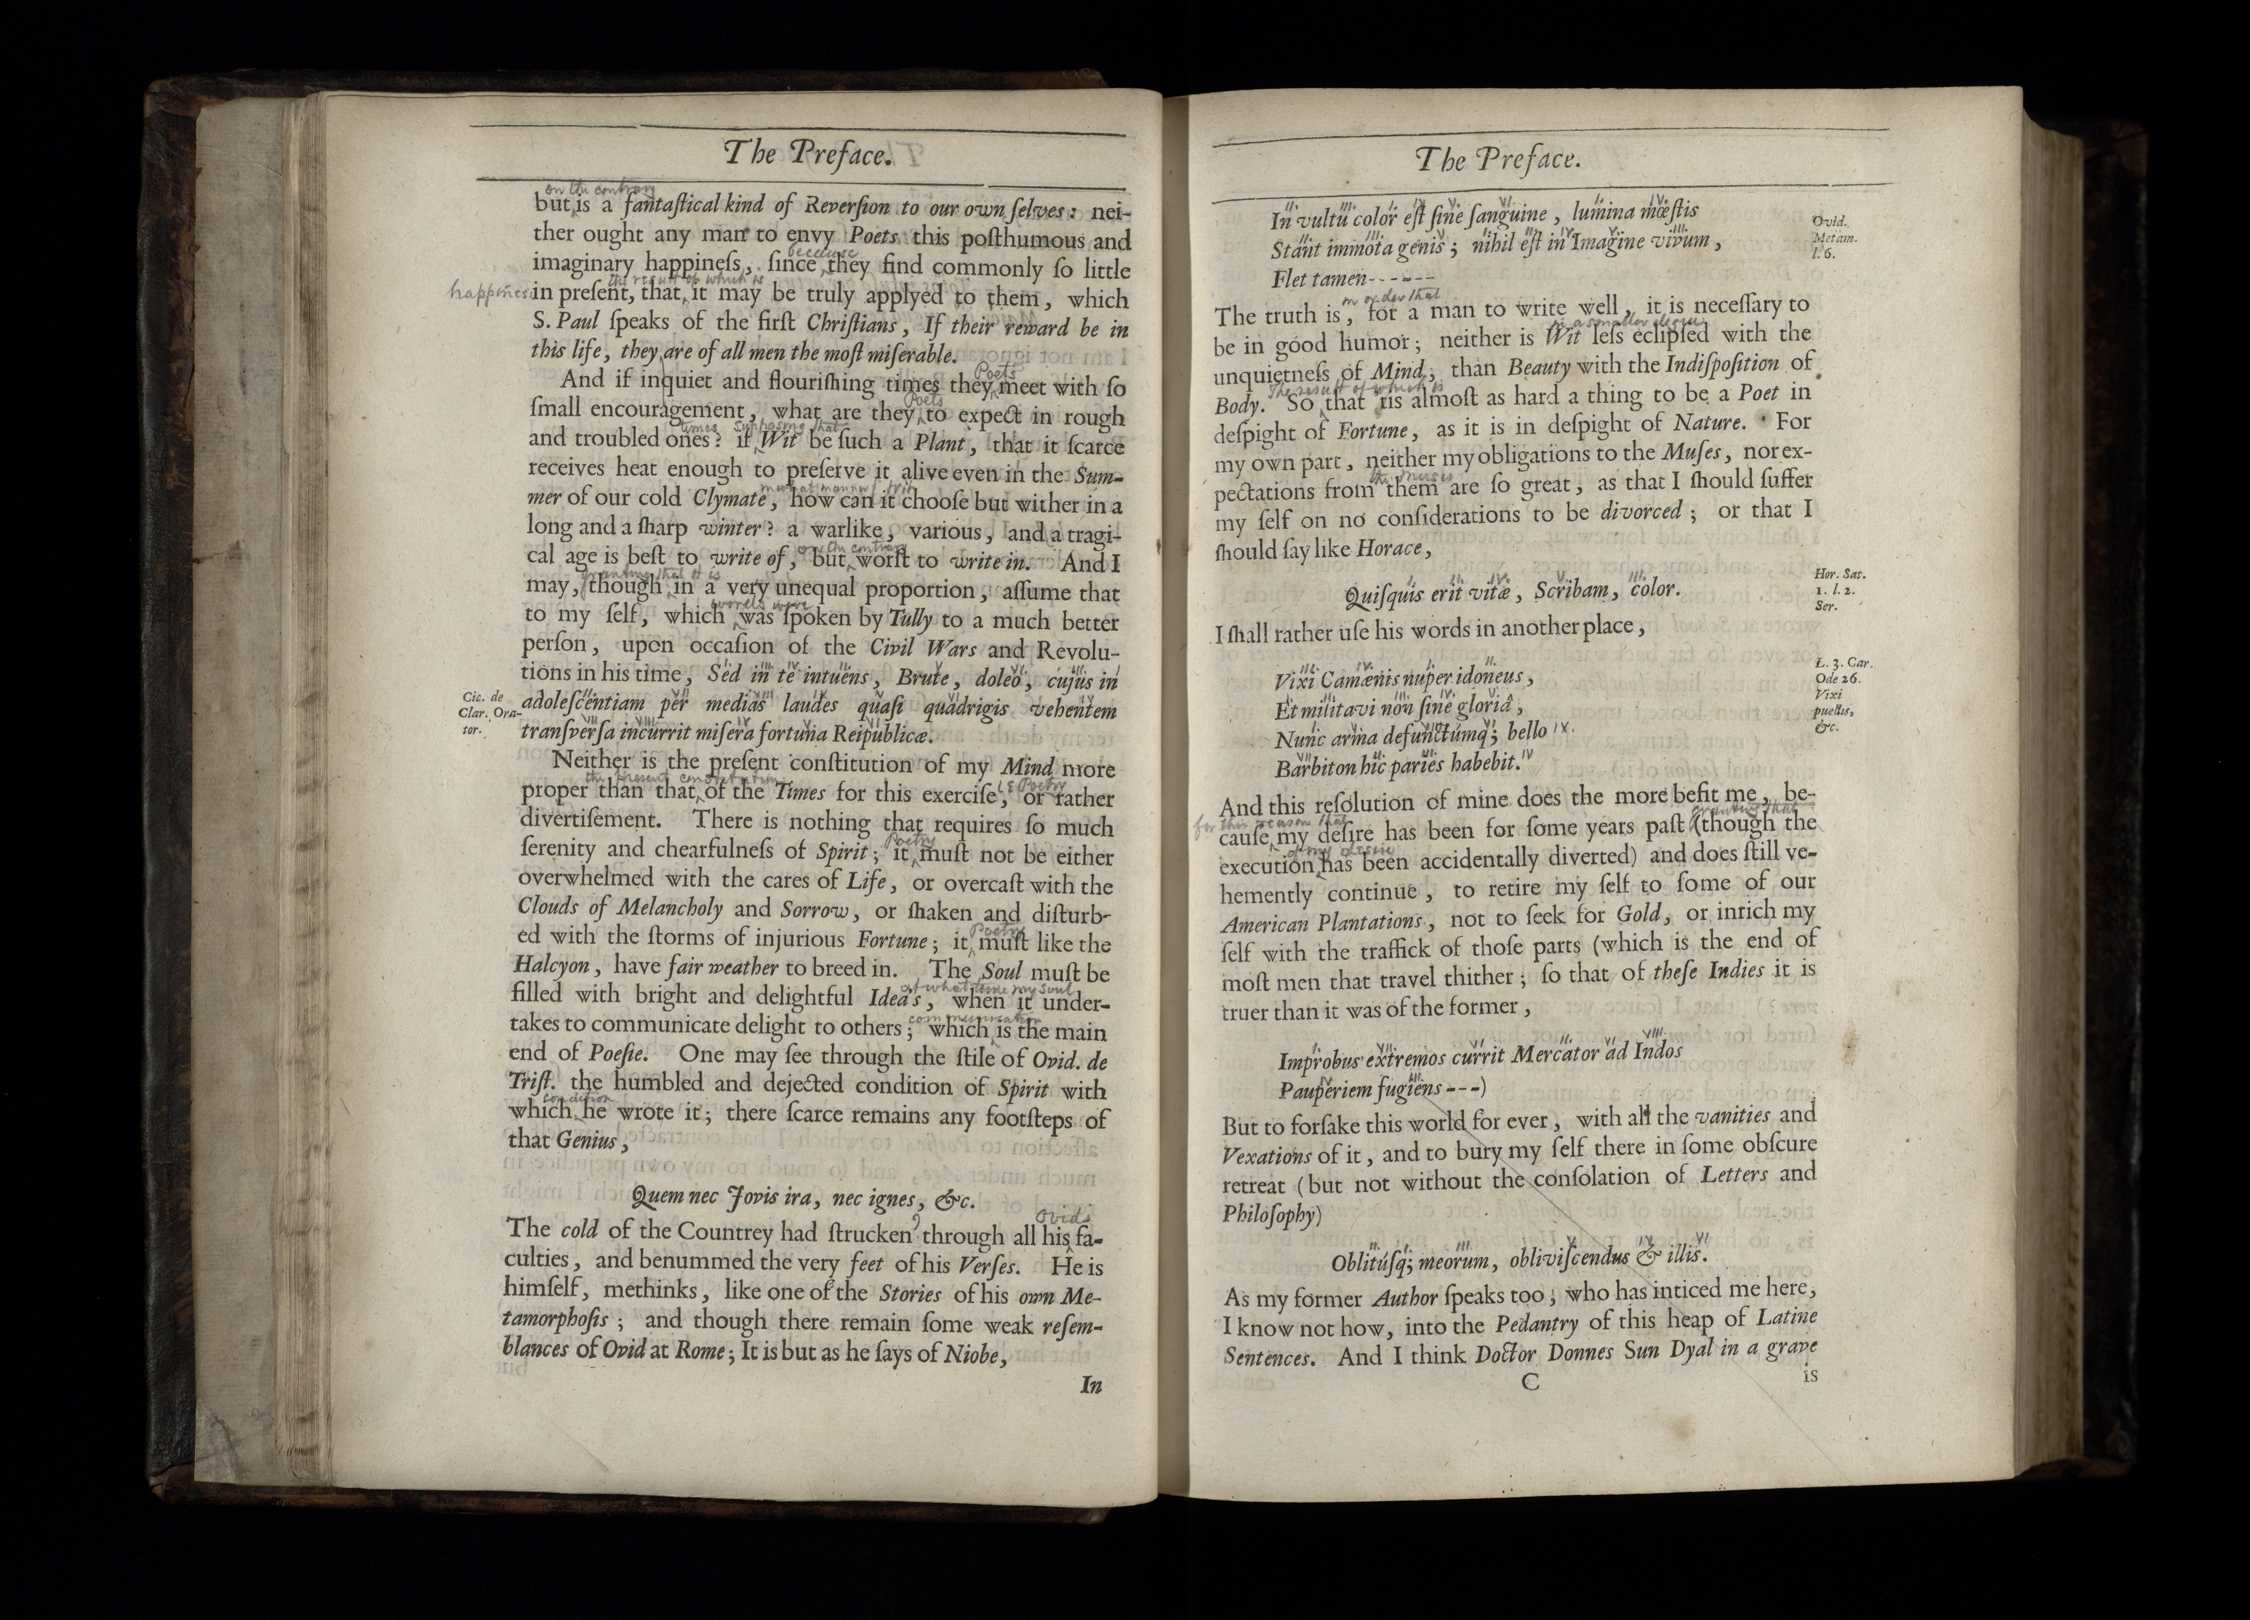 The Preface.
on the contrary
but is a fantaſtical kind of Reverſion to our own ſelves: nei-
ther ought any man to envy Poets this poſthumous and
because
imaginary happineſs, ſince they find commonly ſo little
the result of which is
happiness in preſent, that it may be truly applyed to them, which
S. Paul ſpeaks of the firſt Chriſtians, If their reward be in
this life, they are of all men the moſt miſerable.
Poets
And if in quiet and flouriſhing times they meet with ſo
Poets
ſmall encouragement, what are they to expect in rough
times Supposing that
and troubled ones? if Wit be ſuch a Plant, that it ſcarce
receives heat enough to preſerve it alive even in the Sum-
in what manner wit
mer of our cold Clymate, how can it chooſe but wither in a
long and a ſharp winter? a warlike, various, and a tragi-
on the contrary
cal age is beſt to write of, but worſt to write in. And I
granting that it is
may, though in a very unequal proportion, aſſume that
words were
to my ſelf, which was ſpoken by Tully to a much better
perſon, upon occaſion of the Civil Wars and Revolu-
tions in his time, Sed in te intuens, Brute, doleo, cujus in
Cic. de adoleſcentiam per medias laudes quaſi quadrigis vehentem
Clar. Ora-
tor. tranſverſa incurrit miſera fortuna Reipublicæ.
Neither is the preſent conſtitution of my Mind more
the present constitution i.e Poetry
proper than that of the Times for this exerciſe, or rather
divertiſement. There is nothing that requires ſo much
Poetry
ſerenity and chearfulneſs of Spirit; it muſt not be either
overwhelmed with the cares of Life, or overcaſt with the
Clouds of Melancholy and Sorrow, or ſhaken and diſturb-
Poetry
ed with the ſtorms of injurious Fortune; it muſt like the
Halcyon, have fair weather to breed in. The Soul muſt be
at what time my Soul
filled with bright and delightful Idea's, when it under-
communication
takes to communicate delight to others; which is the main
end of Poeſie. One may ſee through the ſtile of Ovid. de
Triſt. the humbled and dejected condition of Spirit with
condition
which he wrote it; there ſcarce remains any footſteps of
that Genius,
Quem nec Jovis ira, nec ignes, &c.
Ovids
The cold of the Countrey had ſtrucken through all his fa-
culties, and benummed the very feet of his Verſes. He is
himſelf, methinks, like one of the Stories of his own Me-
tamorphoſis; and though there remain ſome weak reſem-
blances of Ovid at Rome; It is but as he ſays of Niobe,
In
The Preface.
In vultu color eſt ſine ſanguine, lumina mœſtis
Stant immota genis; nihil eſt in Imagine vivum,
Flet tamen------
Ovid.
Metam.
l. 6.
in order that
The truth is, for a man to write well, it is neceſſary to
in a smaller degree
be in good humor; neither is Wit leſs eclipſed with the
unquietneſs of Mind, than Beauty with the Indiſpoſition of
The result of which is
Body. So that 'tis almoſt as hard a thing to be a Poet in
deſpight of Fortune, as it is in deſpight of Nature. For
my own part, neither my obligations to the Muſes, nor ex-
the Muses
pectations from them are ſo great, as that I ſhould ſuffer
my ſelf on no conſiderations to be divorced; or that I
ſhould ſay like Horace,
Quiſquis erit vitæ, Scribam, color.
Hor. Sat.
1. l. 2.
Ser.
I ſhall rather uſe his words in another place,
Vixi Camænis nuper idoneus,
Et militavi non ſine gloriâ,
Nunc arma defunctúmq; bello
Barbiton hic paries habebit.
L. 3. Car.
Ode 26.
Vixi
puellis,
&c.
And this reſolution of mine does the more befit me, be-
for this reason that granting that
cauſe my deſire has been for ſome years paſt (though the
of my desire
execution has been accidentally diverted) and does ſtill ve-
hemently continue, to retire my ſelf to ſome of our
American Plantations, not to ſeek for Gold, or inrich my
ſelf with the traffick of thoſe parts (which is the end of
moſt men that travel thither; ſo that of theſe Indies it is
truer than it was of the former,
Improbus extremos currit Mercator ad Indos
Pauperiem fugiens ---)
But to forſake this world for ever, with all the vanities and
Vexations of it, and to bury my ſelf there in ſome obſcure
retreat (but not without the conſolation of Letters and
Philoſophy)
Oblitúſq; meorum, obliviſcendus & illis.
As my former Author ſpeaks too, who has inticed me here,
I know not how, into the Pedantry of this heap of Latine
Sentences. And I think Doctor Donnes Sun Dyal in a grave
C is